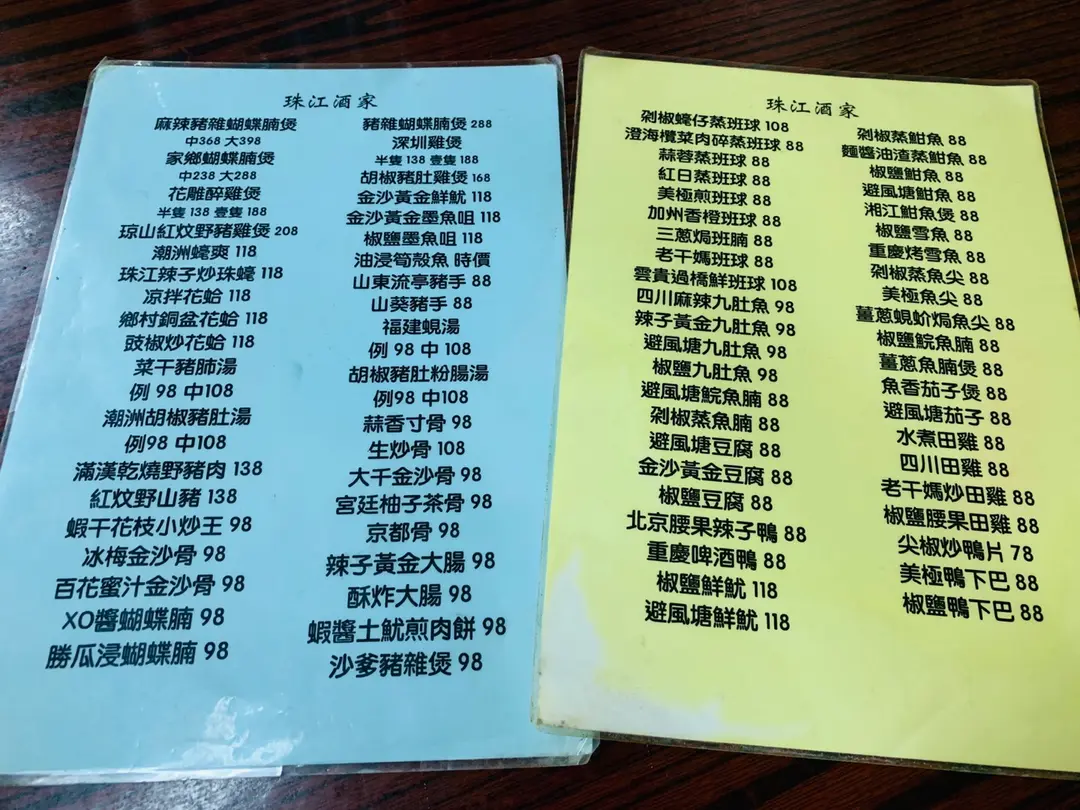 珠江酒家
麻辣豬雜蝴蝶腩煲
中368 大398
家鄉蝴蝶腩煲
中238 大288
花雕醉雞煲
半隻 138 壹隻 188
琼山紅炆野豬雞煲 208
潮洲蠔爽 118
珠江辣子炒珠蠔 118
凉拌花蛤 118
鄉村銅盆花蛤 118
豉椒炒花蛤 118
菜干豬肺湯
例 98 中108
潮洲胡椒豬肚湯
例98 中108
滿漢乾燒野豬肉 138
紅炆野山豬 138
蝦干花枝小炒王 98
冰梅金沙骨 98
百花蜜汁金沙骨 98
XO醬蝴蝶腩 98
勝瓜浸蝴蝶腩 98
豬雜蝴蝶腩煲 288
深圳雞煲
半隻 138 壹隻 188
胡椒豬肚雞煲 168
金沙黃金鮮魷 118
金沙黃金墨魚咀 118
椒鹽墨魚咀 118
油浸筍殼魚 時價
山東流亭豬手 88
山葵豬手 88
福建蜆湯
例 98 中 108
胡椒豬肚粉腸湯
例98 中108
蒜香寸骨 98
生炒骨 108
大千金沙骨 98
宮廷柚子茶骨 98
京都骨 98
辣子黃金大腸 98
酥炸大腸 98
蝦醬土魷煎肉餅 98
沙爹豬雜煲 98
珠江酒家
剁椒蠔仔蒸班球 108
澄海欖菜肉碎蒸班球 88
蒜蓉蒸班球 88
紅日蒸班球 88
美極煎班球 88
加州香橙班球 88
三蔥焗班腩 88
老干媽班球 88
雲貴過橋鮮班球 108
四川麻辣九肚魚 98
辣子黃金九肚魚 98
避風塘九肚魚 98
椒鹽九肚魚 98
避風塘鯇魚腩 88
剁椒蒸魚腩 88
避風塘豆腐 88
金沙黃金豆腐 88
椒鹽豆腐 88
北京腰果辣子鴨 88
重慶啤酒鴨 88
椒鹽鮮魷 118
避風塘鮮魷 118
剁椒蒸魽魚 88
麵醬油渣蒸魽魚 88
椒鹽魽魚 88
避風塘魽魚 88
湘江魽魚煲 88
椒鹽雪魚 88
重慶烤雪魚 88
剁椒蒸魚尖 88
美極魚尖 88
薑蔥蜆蚧焗魚尖 88
椒鹽鯇魚腩 88
薑蔥魚腩煲 88
魚香茄子煲 88
避風塘茄子 88
水煮田雞 88
四川田雞 88
老干媽炒田雞 88
椒鹽腰果田雞 88
尖椒炒鴨片 78
美極鴨下巴 88
椒鹽鴨下巴 88